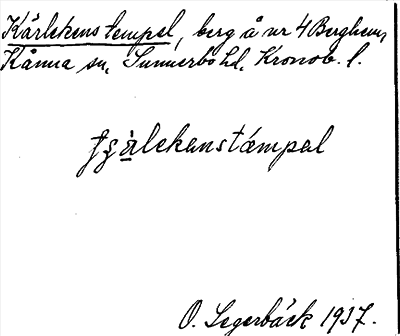 Kärlekens tempel, berg å nr 4 Berghem,
Kånna sn, Sunnerbo hd, Kronob. l.
çä̀lekanstémpəl
O. Segerbäck 1937.